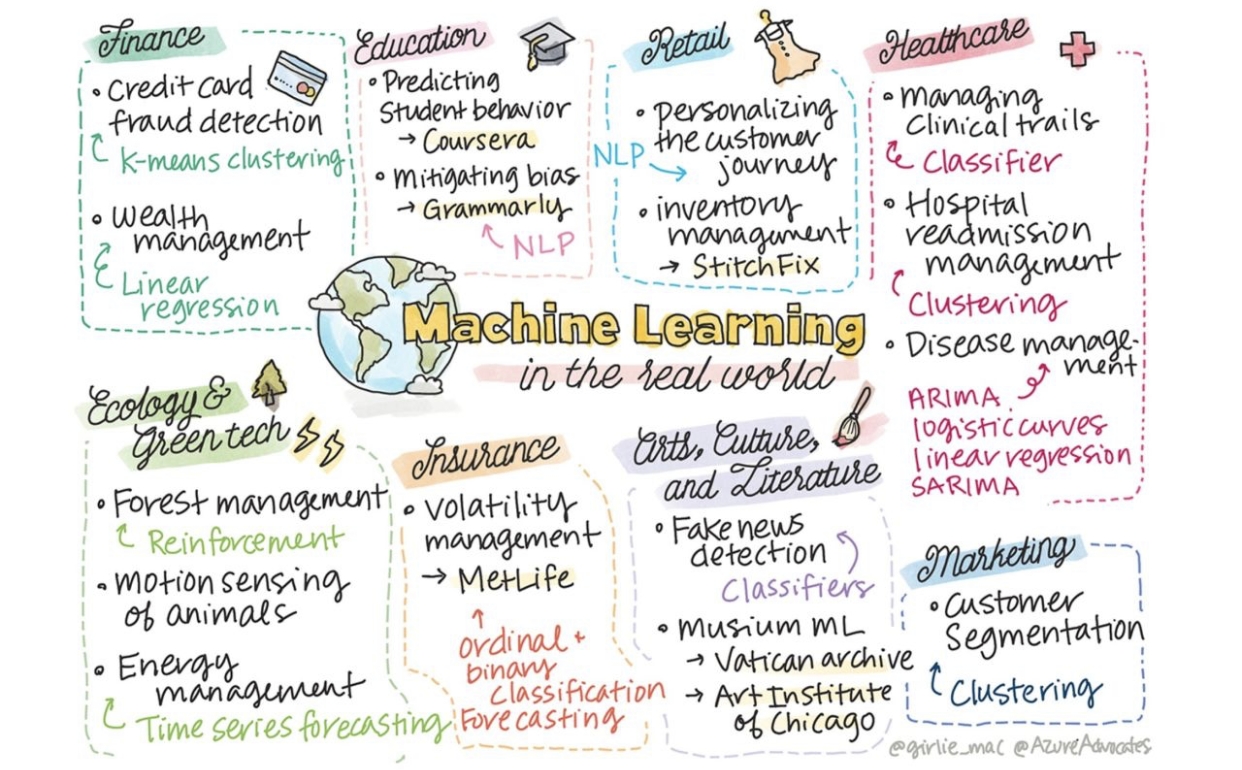 Finance
• Credit card
fraud detection
K-means clustering
• Wealth
management
Linear
regression
Education
• Predicting
Student behavior
→ Coursera
• Mitigating bias
→ Grammarly
NLP
Retail
• personalizing
the customer
journey
NLP
• inventory
management
→ StitchFix
Healthcare
• Managing
Clinical trails
Classifier
• Hospital
readmission
management
Clustering
• Disease manage-
ment
ARIMA
logistic curves
linear regression
SARIMA
Machine Learning
in the real world
Ecology &
Green tech
• Forest management
Reinforcement
• Motion sensing
of animals
• Energy
management
Time series forecasting
Insurance
• Volatility
management
→ MetLife
ordinal +
binary
classification
Forecasting
Arts, Culture,
and Literature
• Fake news
detection
Classifiers
• Musium ML
→ Vatican archive
→ Art Institute
of Chicago
Marketing
• Customer
Segmentation
Clustering
@girlie_mac @AzureAdvocates